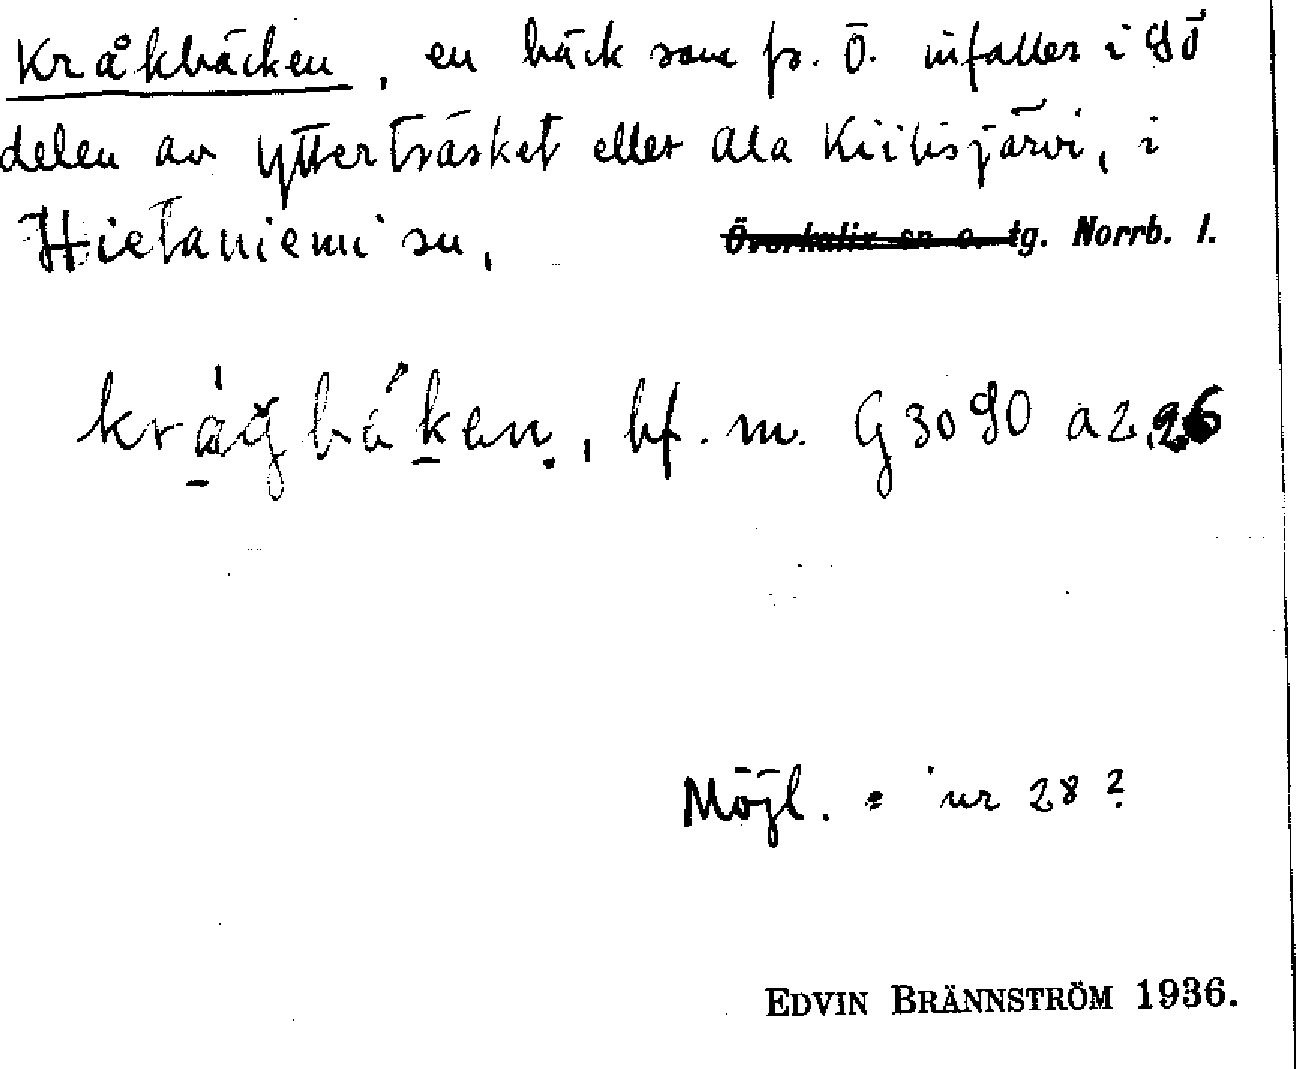 Kråkbäcken, en bäck som fr. Ö. infaller i SÖ
delen av Ytterträsket eller Ala Kiilisjärvi, i
Hietaniemi sn,
Överkalix sn o. tg. Norrb. l.
bf. m. G 3090 a 2,26
Möjl. = nr 28?
EDVIN BRÄNNSTRÖM 1936.